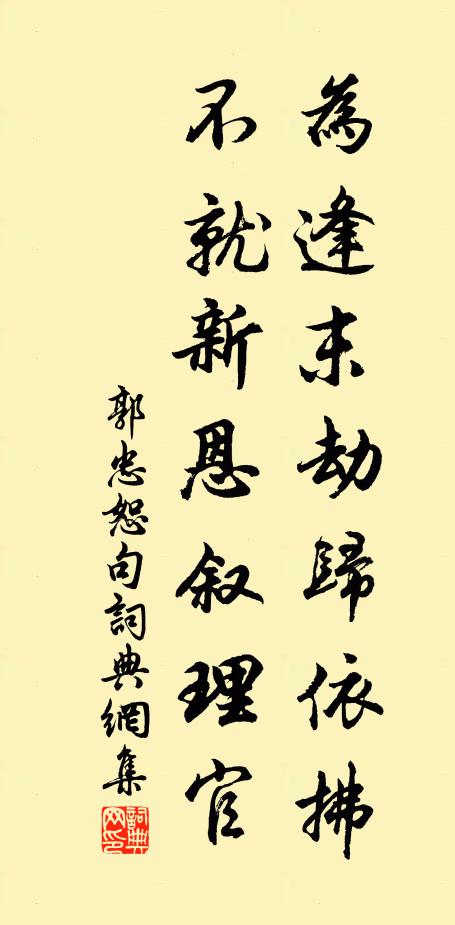 為逢末劫歸依拂
不就新恩叙理官
郭忠恕句詞典網集
詞典网印